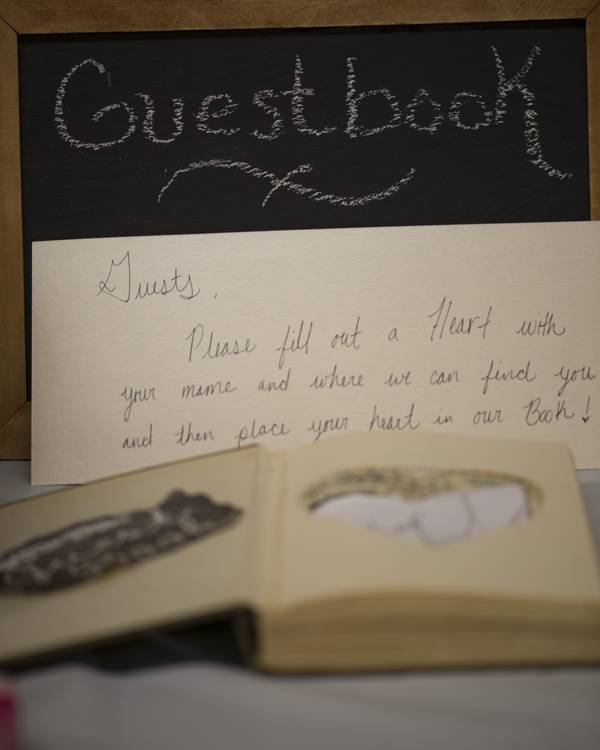 Guestbook
Guests,
Please fill out a Heart with
your name and where we can find you
and then place your heart in our Book!